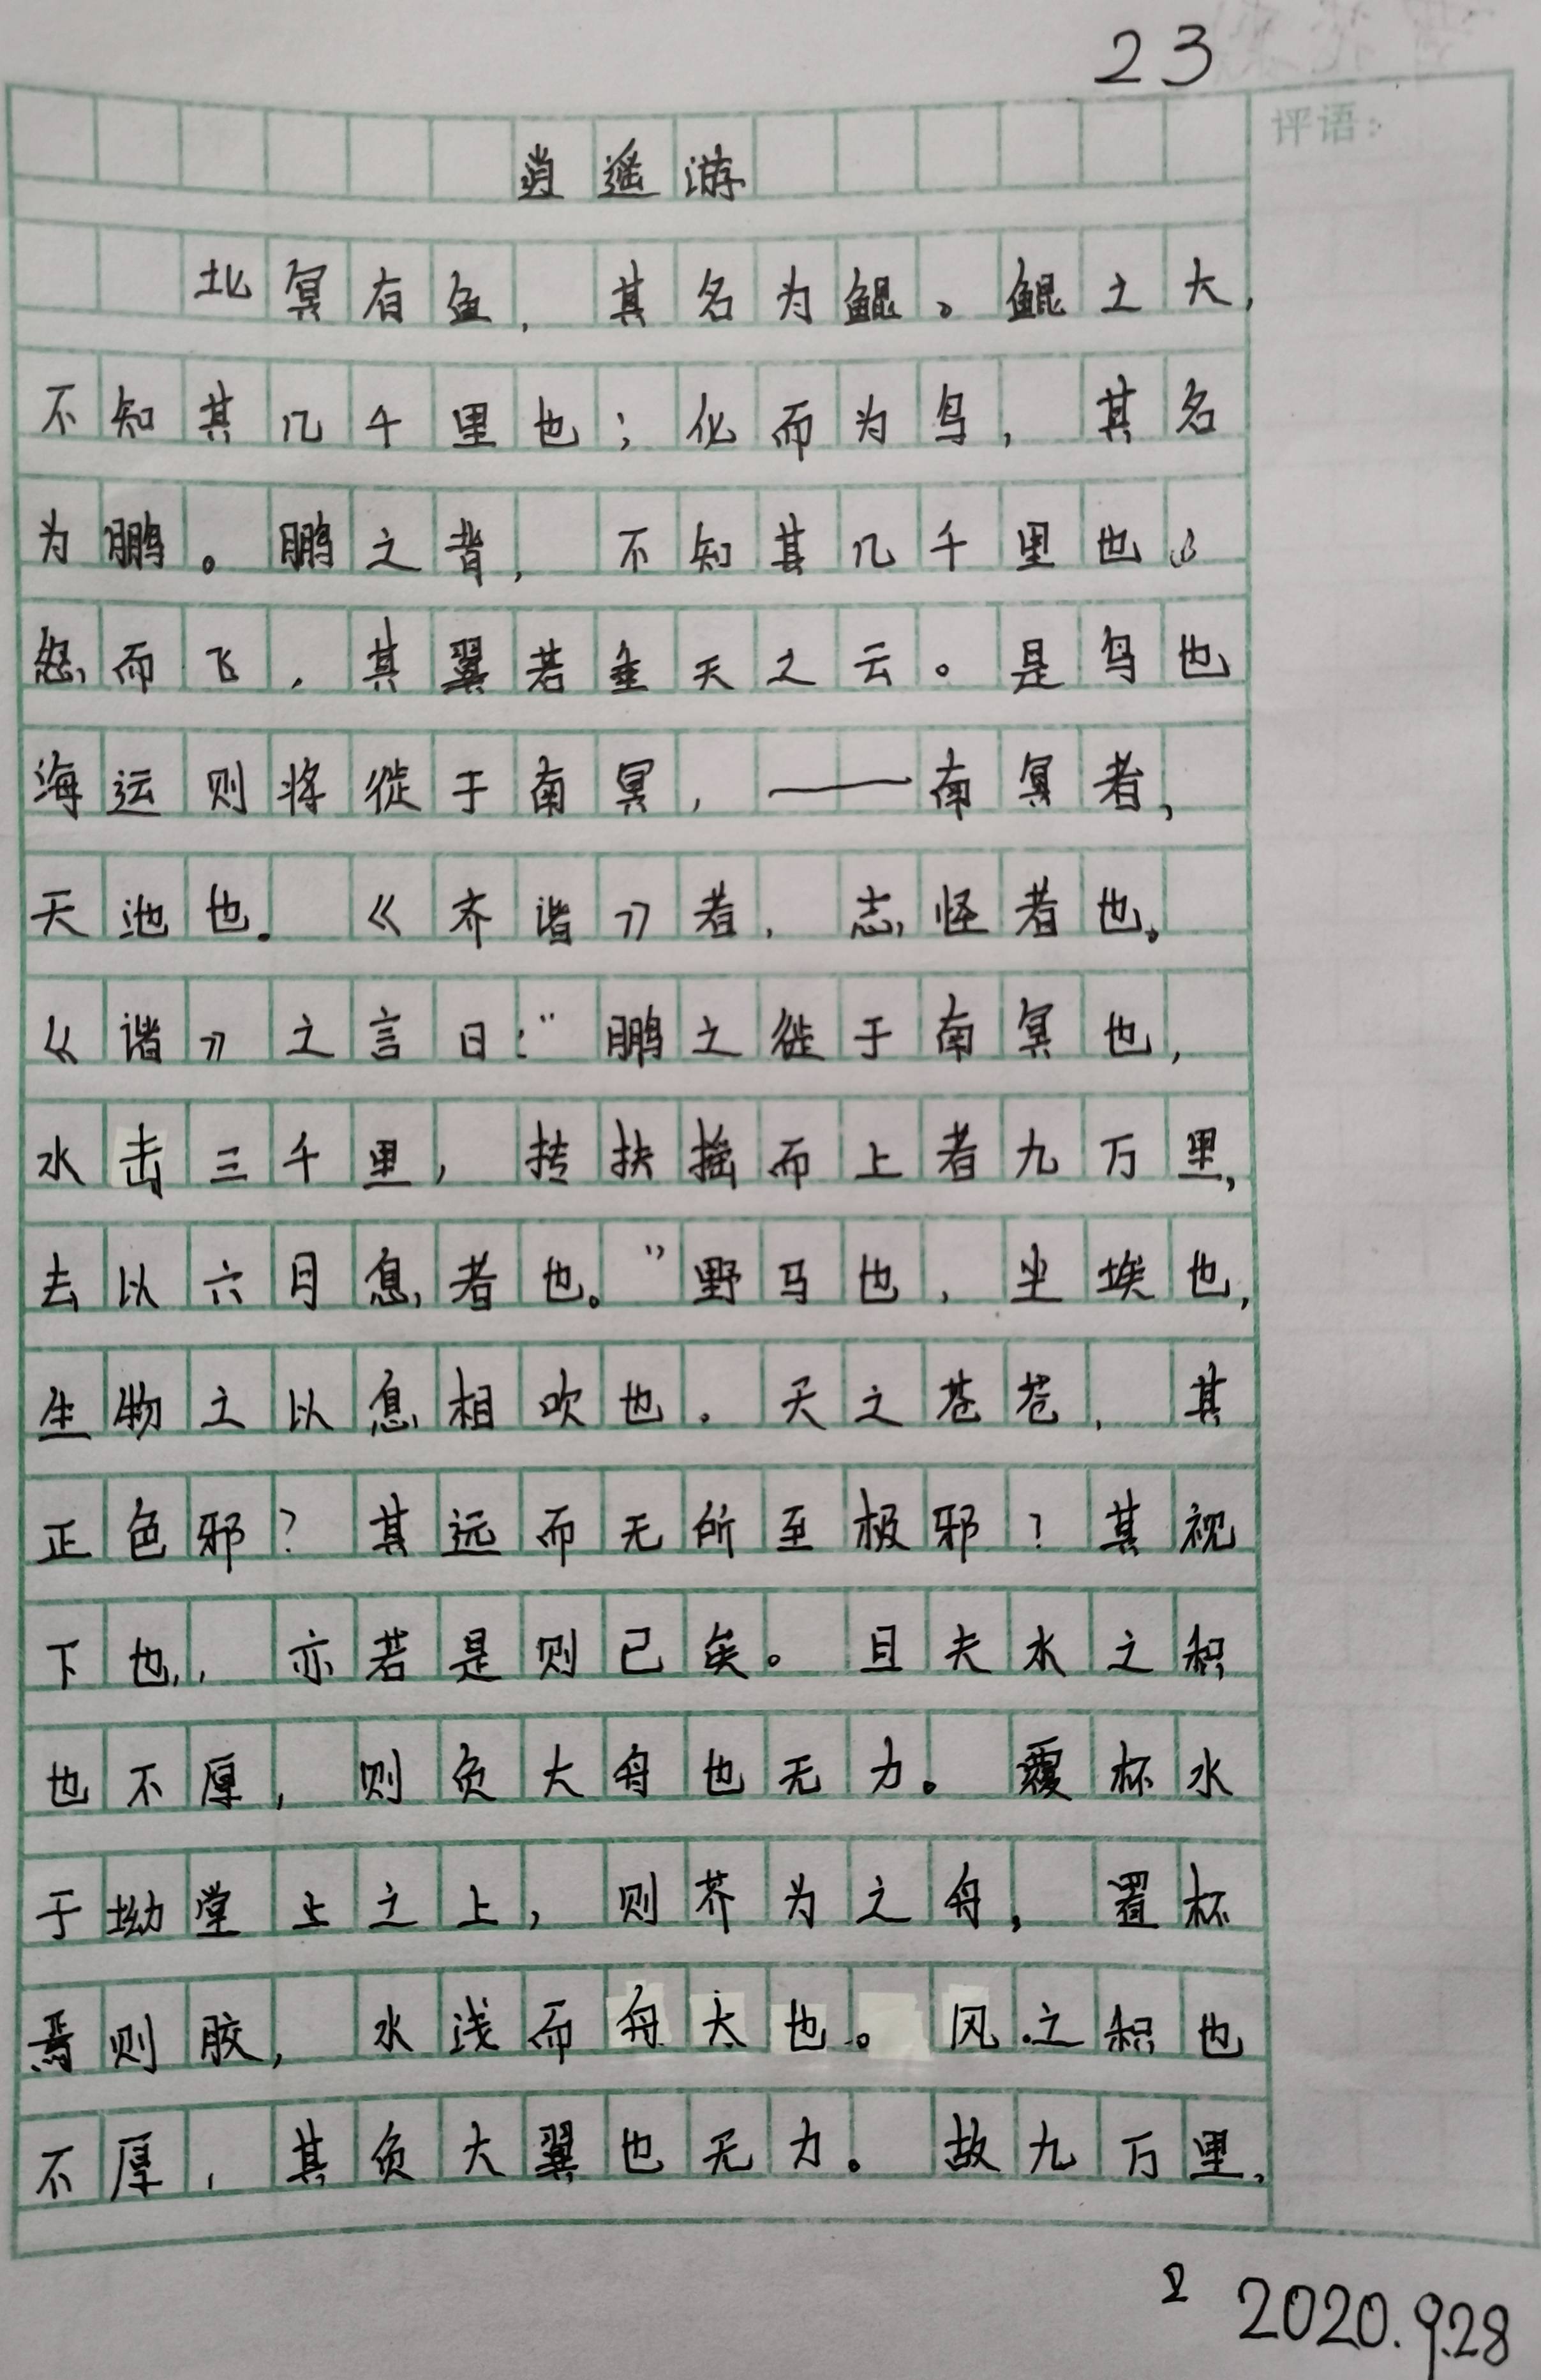 23
评语：
逍遥游
北冥有鱼，其名为鲲。鲲之大，
不知其几千里也；化而为鸟，其名
为鹏。鹏之背，不知其几千里也。
怒而飞，其翼若垂天之云。是鸟也
海运则将徙于南冥，——南冥者，
天池也。《齐谐》者，志怪者也。
《谐》之言曰：“鹏之徙于南冥也，
水击三千里，抟扶摇而上者九万里，
去以六月息者也。”野马也，尘埃也，
生物之以息相吹也。天之苍苍，其
正色邪？其远而无所至极邪？其视
下也，亦若是则已矣。且夫水之积
也不厚，则负大舟也无力。覆杯水
于坳堂上之上，则芥为之舟，置杯
焉则胶，水浅而舟大也。风之积也
不厚，其负大翼也无力。故九万里，
2020.9.28